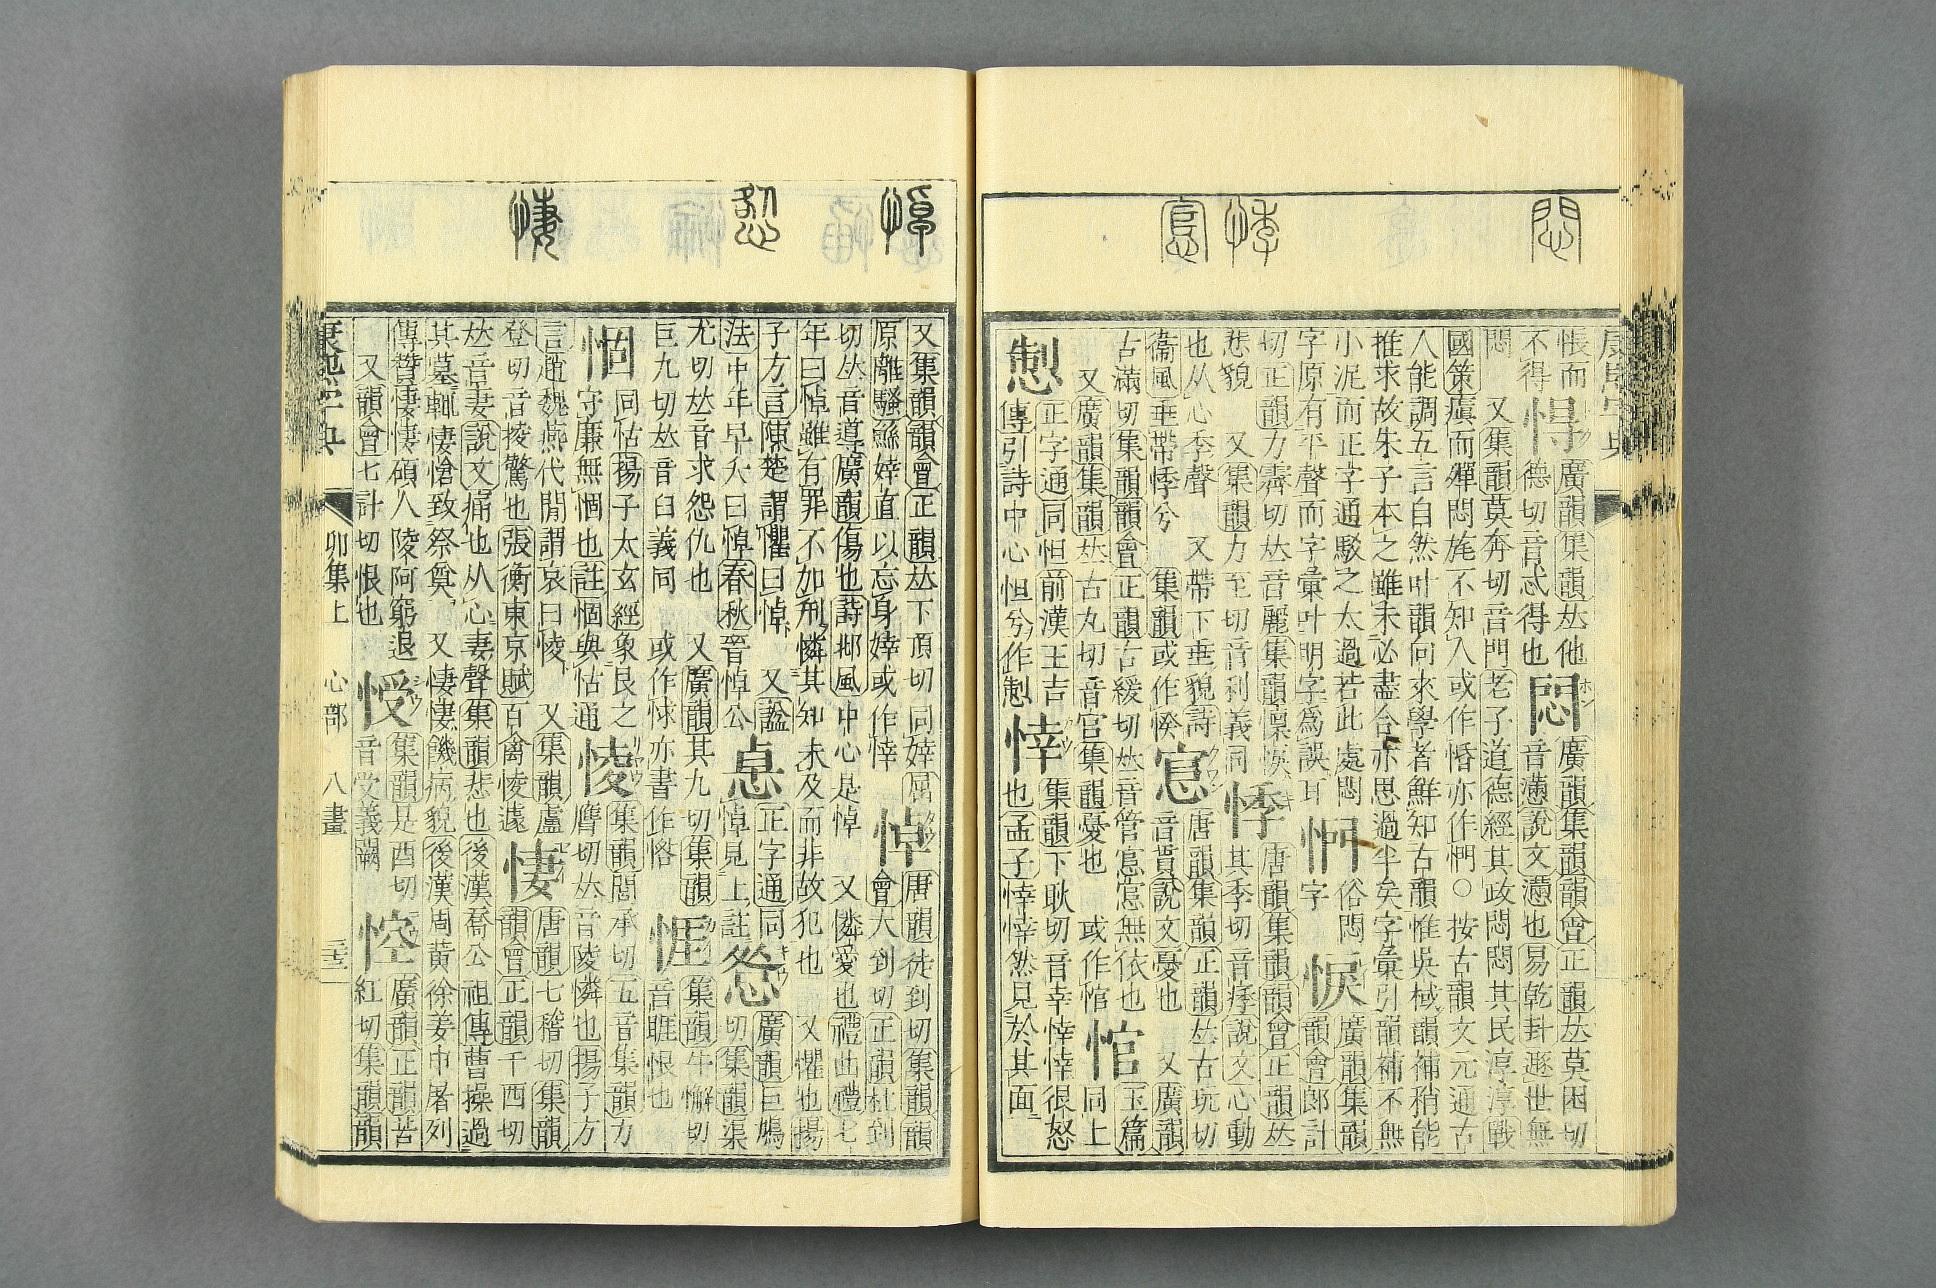 悶
悸
悹
悵而
不得 㥂 德切音忒得也 悶 音懣說文懣也易乾卦遯世無
廣韻集韻𠀤他 廣韻集韻韻會正韻𠀤莫困切
悶 又集韻莫奔切音門老子道德經其政悶悶其民淳淳戰
國策癀而殫悶旄不知人或作惛亦作㦖○按古韻文元通古
人能調五言自然叶韻向來學者鮮知古韻惟吳棫韻補稍能
推求故朱子本之雖未必盡合亦思過半矣字彙引韻補不無
小泥而正字通駁之太過若此處悶 俗悶 廣韻集韻
字原有平聲而字彙叶明字爲誤耳 字 悷 韻會郎計
切正韻力霽切𠀤音麗集韻懍悷 悸 唐韻集韻韻會正韻𠀤
悲貌 又集韻力至切音利義同 其季切音痵說文心動
也从心季聲 又帶下垂貌詩 唐韻集韻正韻𠀤古玩切
衞風垂帶悸兮 集韻或作㥍 悹 音貫說文憂也 又廣韻
古滿切集韻韻會正韻古緩切𠀤音管悹悹無依也 玉篇
又廣韻集韻𠀤古丸切音官集韻憂也 或作悺 悺 同上
正字通同怛前漢王吉 集韻下耿切音幸悻悻很怒
傳引詩中心怛兮作㣟 悻 也孟子悻悻然見於其面
悼
惄
悽
又集韻韻會正韻𠀤下頂切同婞 屈 唐韻徒到切集韻韻
原離騷鯀婞直以忘身婞或作悻 悼 會大到切正韻杜到
切𠀤音導廣韻傷也詩邶風中心是悼 又憐愛也禮曲禮七
年曰悼雖有罪不加刑憐其知未及而非故犯也 又懼也揚
子方言陳楚謂懼曰悼 又諡 正字通同 廣韻巨鳩
法中年早夭曰悼春秋晉悼公 悼見上註 切集韻渠
尤切𠀤音求怨仇也 又廣韻其九切集韻 集韻牛懈切
巨九切𠀤音臼義同 或作怵亦書作㤹 音睚恨也
悃 同怙揚子太玄經象艮之 集韻閭承切 五音集韻力
守廉無悃也註悃與怙通 㥄 膺切𠀤音陵憐也揚子方
言趙魏燕代閒謂哀曰㥄 又集韻盧 唐韻七稽切集韻
登切音掕驚也張衡東京賦百禽㥄遽 悽 韻會正韻千西切
𠀤音妻說文痛也从心妻聲集韻悲也後漢喬公祖傳曹操過
其墓輒悽愴致祭奠 又悽悽饑病貌後漢周黃徐姜申屠列
傳贊悽悽碩人陵阿窮退 集韻是酉切 廣韻正韻苦
又韻會七計切恨也 㥅 音受義闕 悾 紅切集韻韻
康熙字典 卯集上 心部 八畫